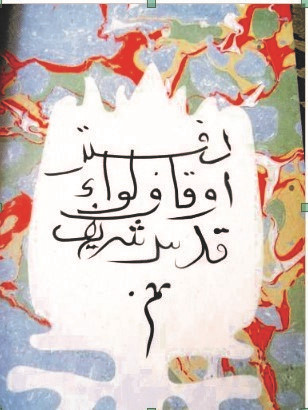 دفتر
اوقاف لواء
قدس شريف